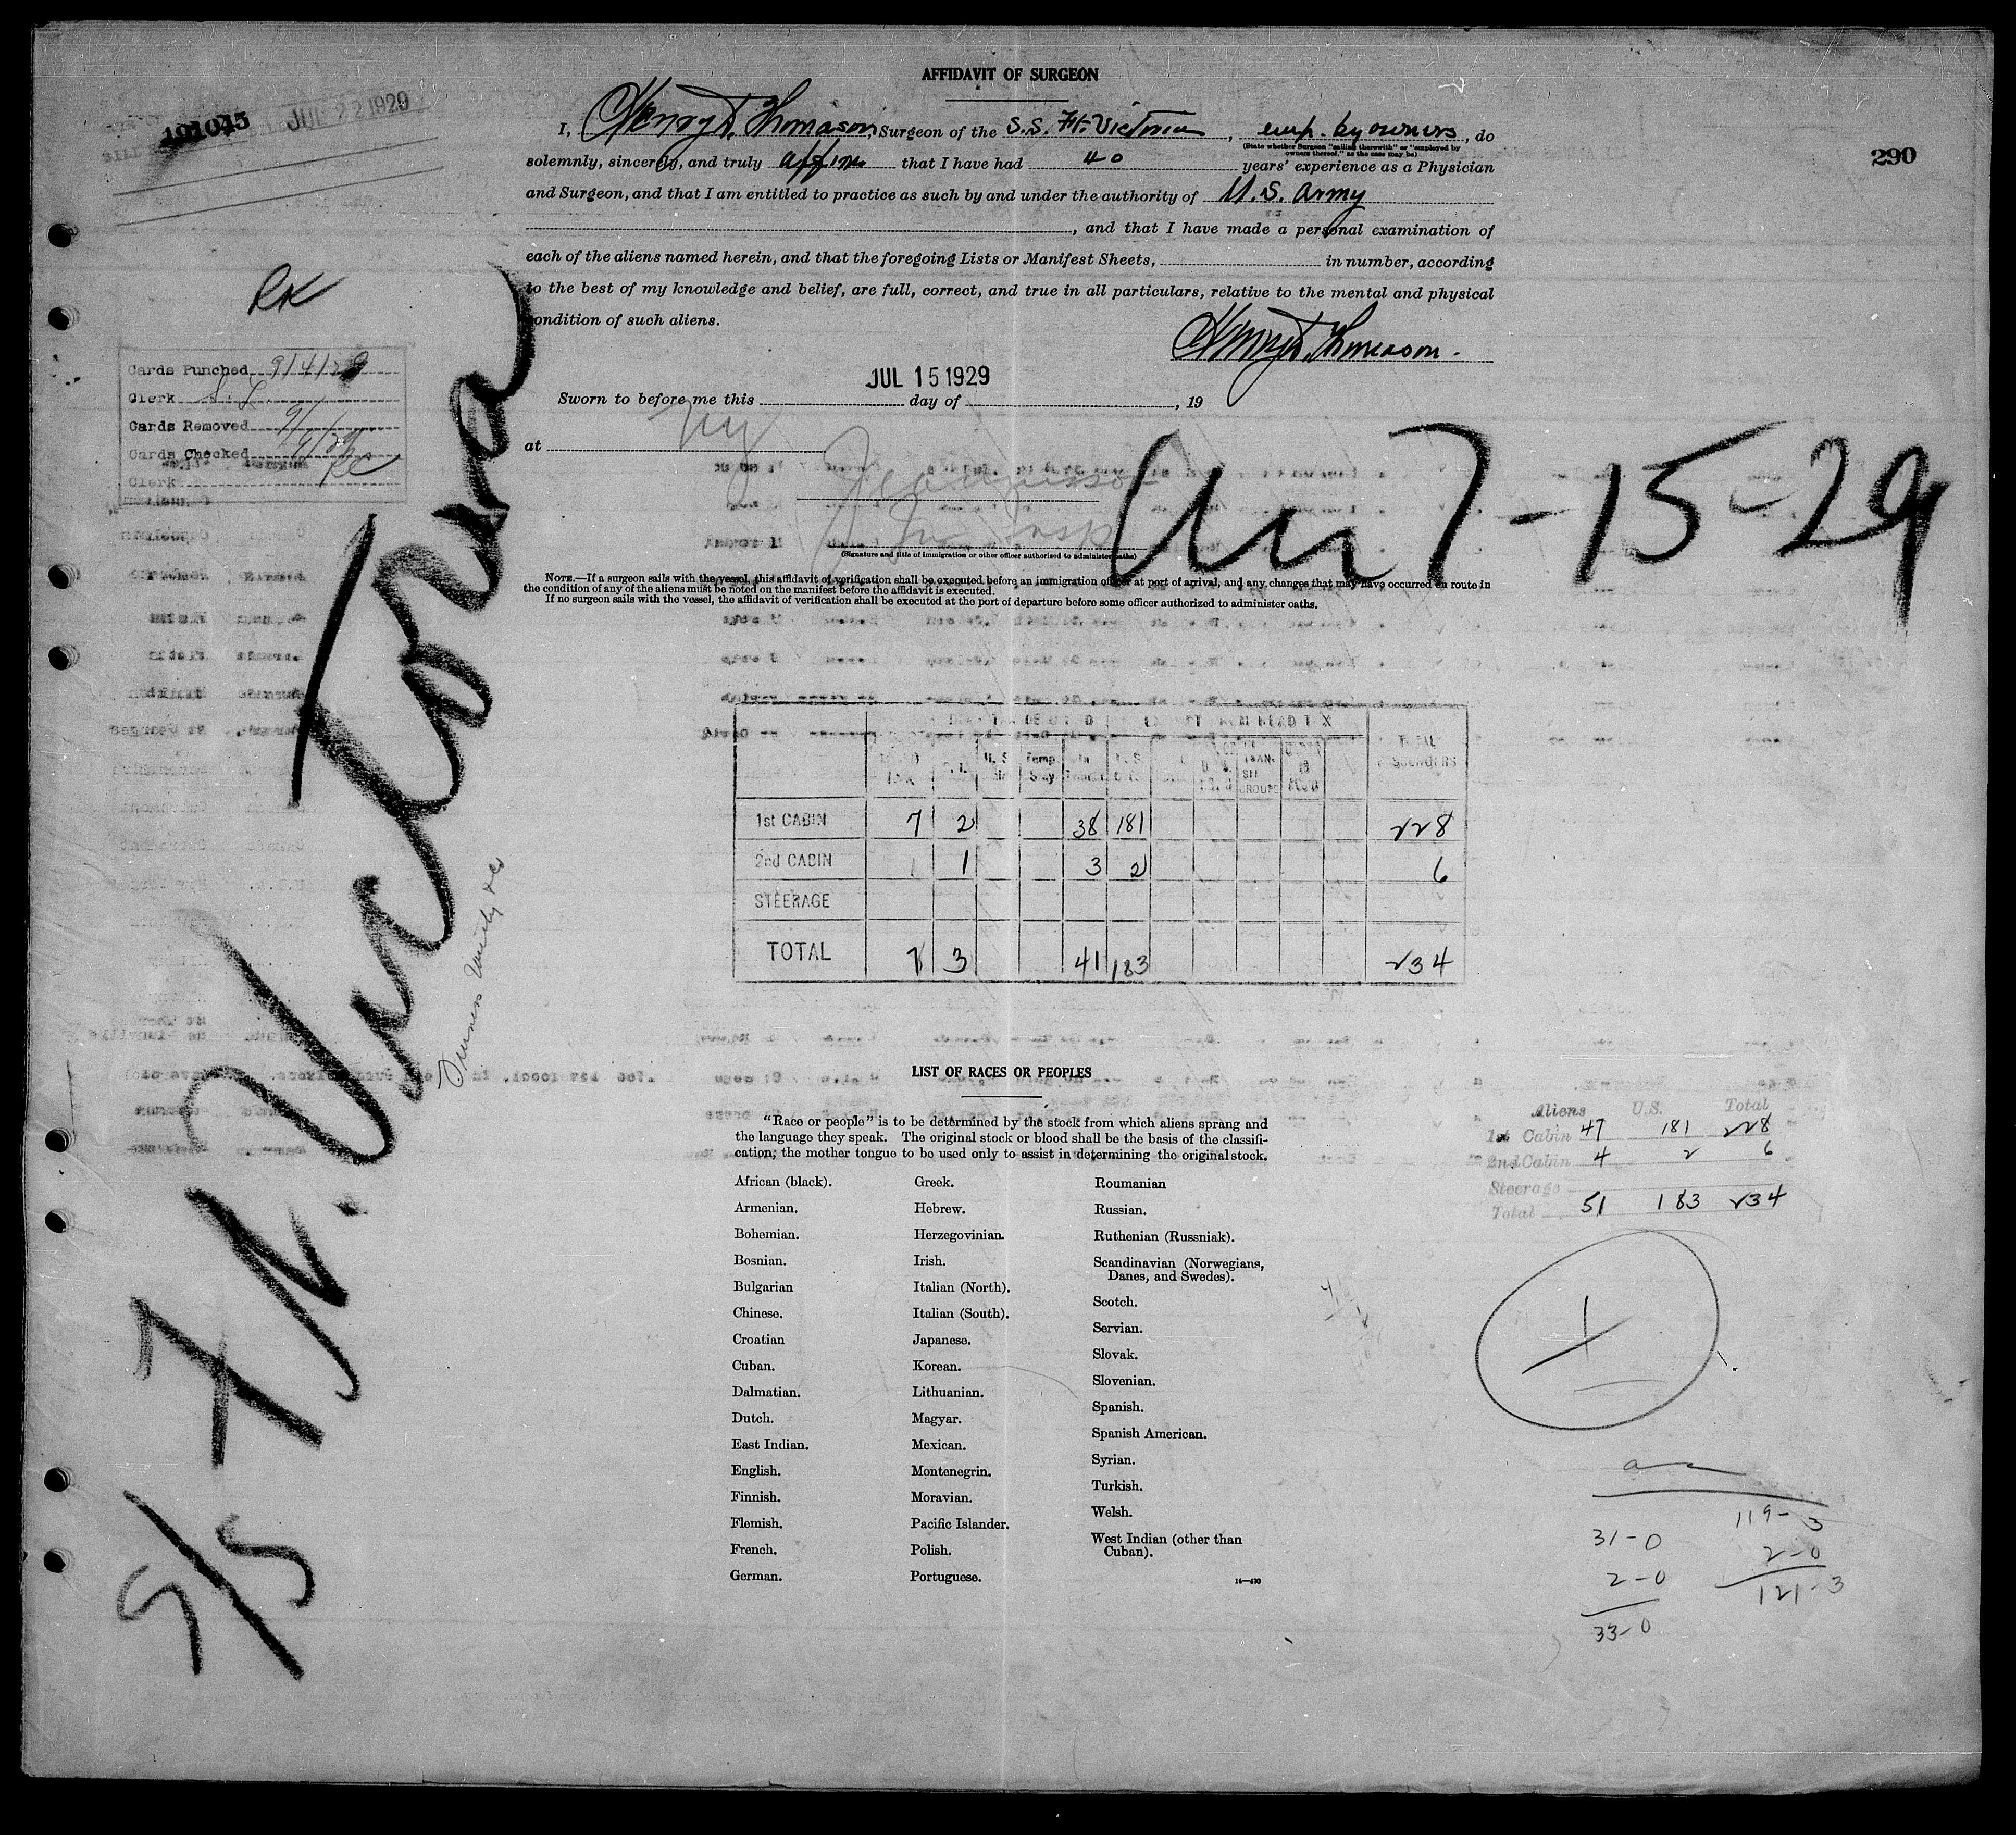 AFFIDAVIT OF SURGEON
191045 JUL 22 1929
I, Henry D. Thomason, Surgeon of the S.S. Ft. Victoria, emp. by owners, do
(State whether Surgeon "sailing therewith" or "employed by
owners thereof," as the case may be)
290
solemnly, sincerely, and truly affirm that I have had 40 years' experience as a Physician
and Surgeon, and that I am entitled to practice as such by and under the authority of U.S. Army
, and that I have made a personal examination of
each of the aliens named herein, and that the foregoing Lists or Manifest Sheets, in number, according
to the best of my knowledge and belief, are full, correct, and true in all particulars, relative to the mental and physical
condition of such aliens.
Henry D. Thomason.
RK
Cards Punched 9/4/29
Clerk S.L.
Cards Removed
Cards Checked
Clerk
JUL 15 1929
Sworn to before me this day of , 19
at NY
Imm Insp
(Signature and title of immigration or other officer authorized to administer oaths)
Arr 7-15-29
S/S Ft. Victoria
NOTE.—If a surgeon sails with the vessel, this affidavit of verification shall be executed before an immigration officer at port of arrival, and any changes that may have occurred en route in
the condition of any of the aliens must be noted on the manifest before the affidavit is executed.
If no surgeon sails with the vessel, the affidavit of verification shall be executed at the port of departure before some officer authorized to administer oaths.
HEAD TAX
U.S. Temp. Stay In U.S. TRANSIT GROUP TOTAL PASSENGERS
1st CABIN 7 2 38 181 228
2nd CABIN 1 3 2 6
STEERAGE
TOTAL 7 3 41 183 234
LIST OF RACES OR PEOPLES
"Race or people" is to be determined by the stock from which aliens sprang and
the language they speak. The original stock or blood shall be the basis of the classifi-
cation; the mother tongue to be used only to assist in determining the original stock.
African (black). Greek. Roumanian
Armenian. Hebrew. Russian.
Bohemian. Herzegovinian. Ruthenian (Russniak).
Bosnian. Irish. Scandinavian (Norwegians,
Danes, and Swedes).
Bulgarian Italian (North). Scotch.
Chinese. Italian (South). Servian.
Croatian Japanese. Slovak.
Cuban. Korean. Slovenian.
Dalmatian. Lithuanian. Spanish.
Dutch. Magyar. Spanish American.
East Indian. Mexican. Syrian.
English. Montenegrin. Turkish.
Finnish. Moravian. Welsh.
Flemish. Pacific Islander. West Indian (other than
Cuban).
French. Polish.
German. Portuguese.
14—430
Aliens U.S. Total
1st Cabin 47 181 228
2nd Cabin 4 2 6
Steerage
Total 51 183 234
31-0 119-3
2-0 2-0
33-0 121-3